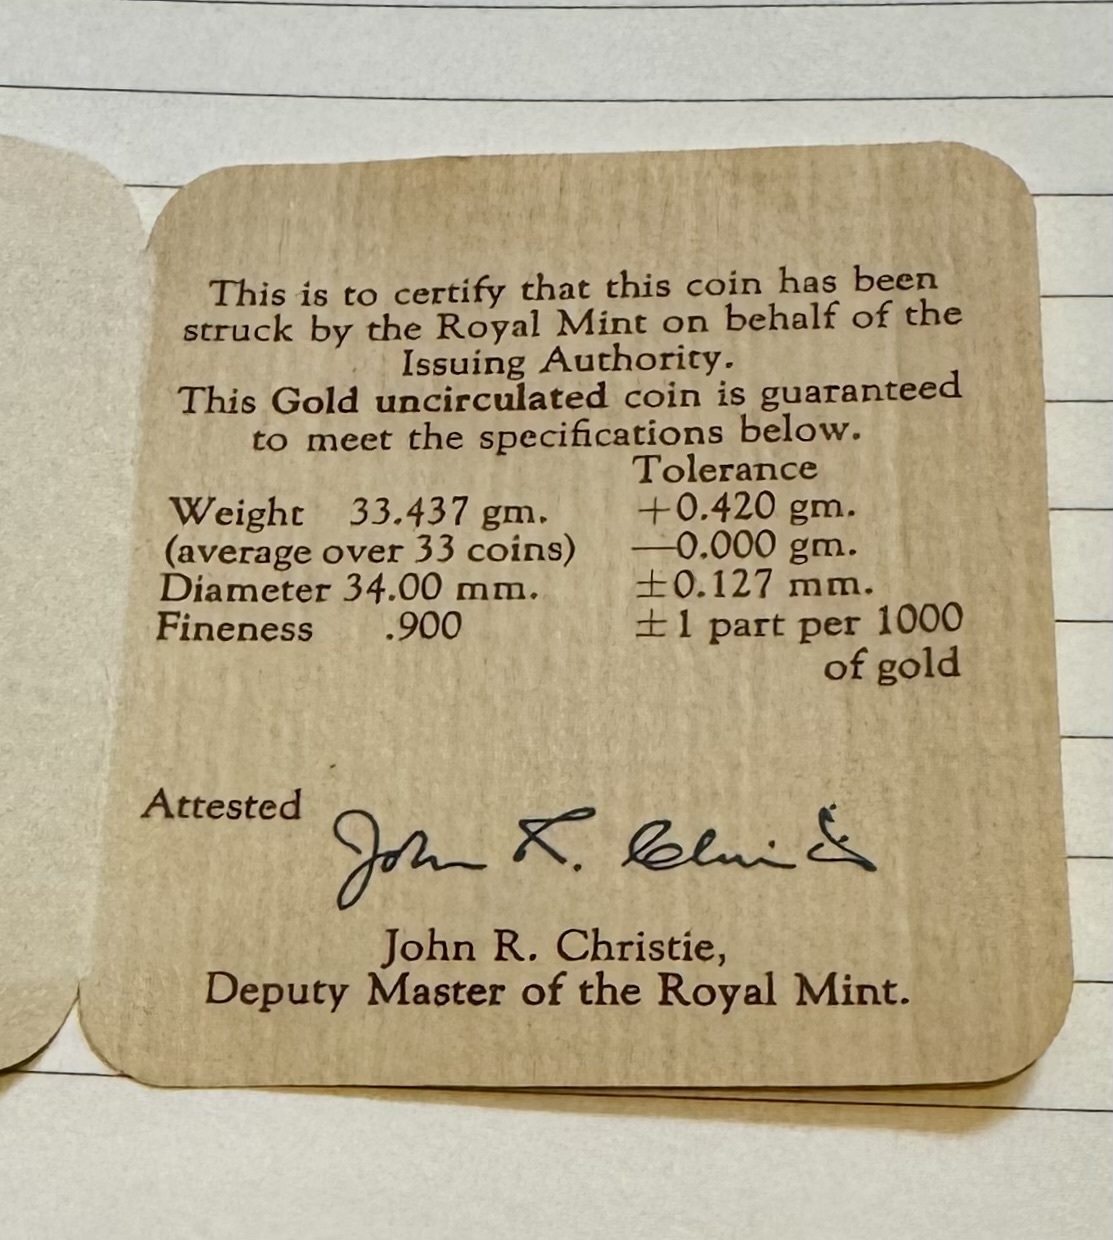 This is to certify that this coin has been
struck by the Royal Mint on behalf of the
Issuing Authority.
This Gold uncirculated coin is guaranteed
to meet the specifications below.
Tolerance
Weight 33.437 gm. +0.420 gm.
(average over 33 coins) —0.000 gm.
Diameter 34.00 mm. ±0.127 mm.
Fineness .900 ±1 part per 1000
of gold
Attested John R. Christie
John R. Christie,
Deputy Master of the Royal Mint.